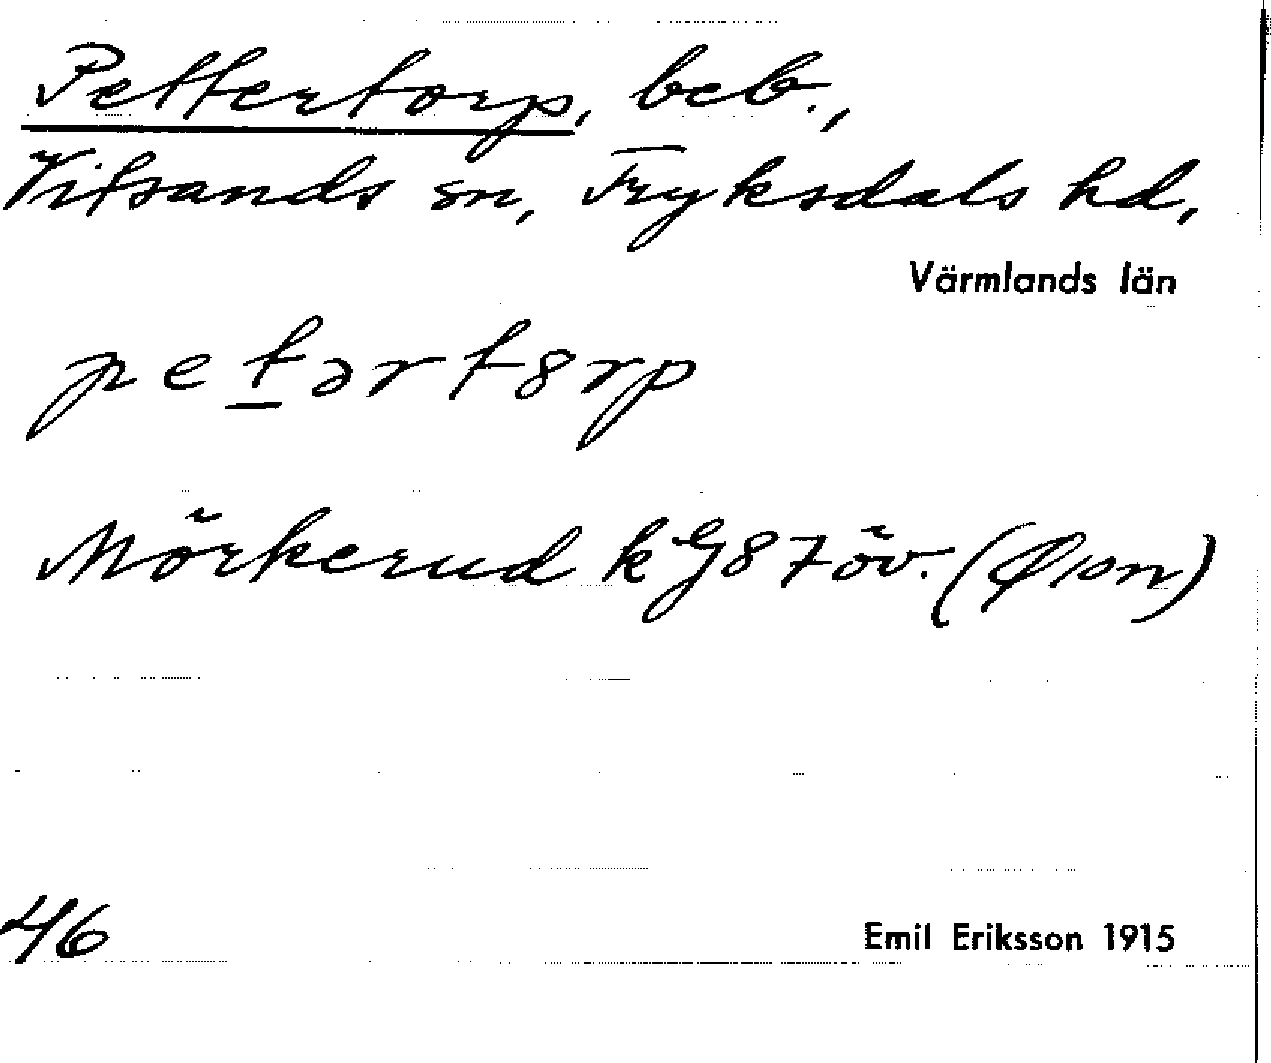 Pettertorp, beb.,
Vitsands sn, Fryksdals hd,
Värmlands län
petərt8rp
Mörkerud k G87 öv.
46
Emil Eriksson 1915